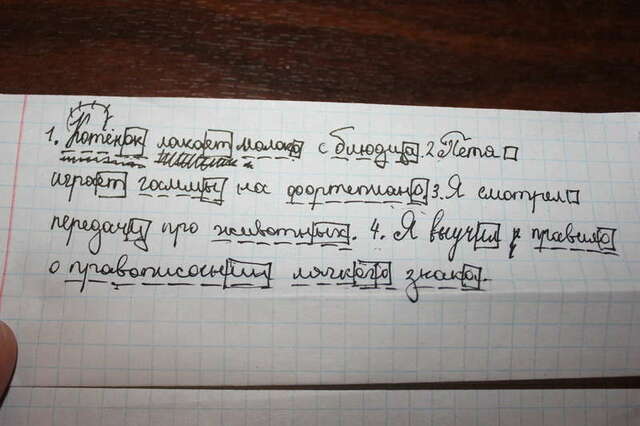 1. Котёнок лакает молоко с блюдца. 2 Петя
играет гаммы на фортепиано. 3. Я смотрел
передачу про животных. 4. Я выучил правило
о правописании мягкого знака.